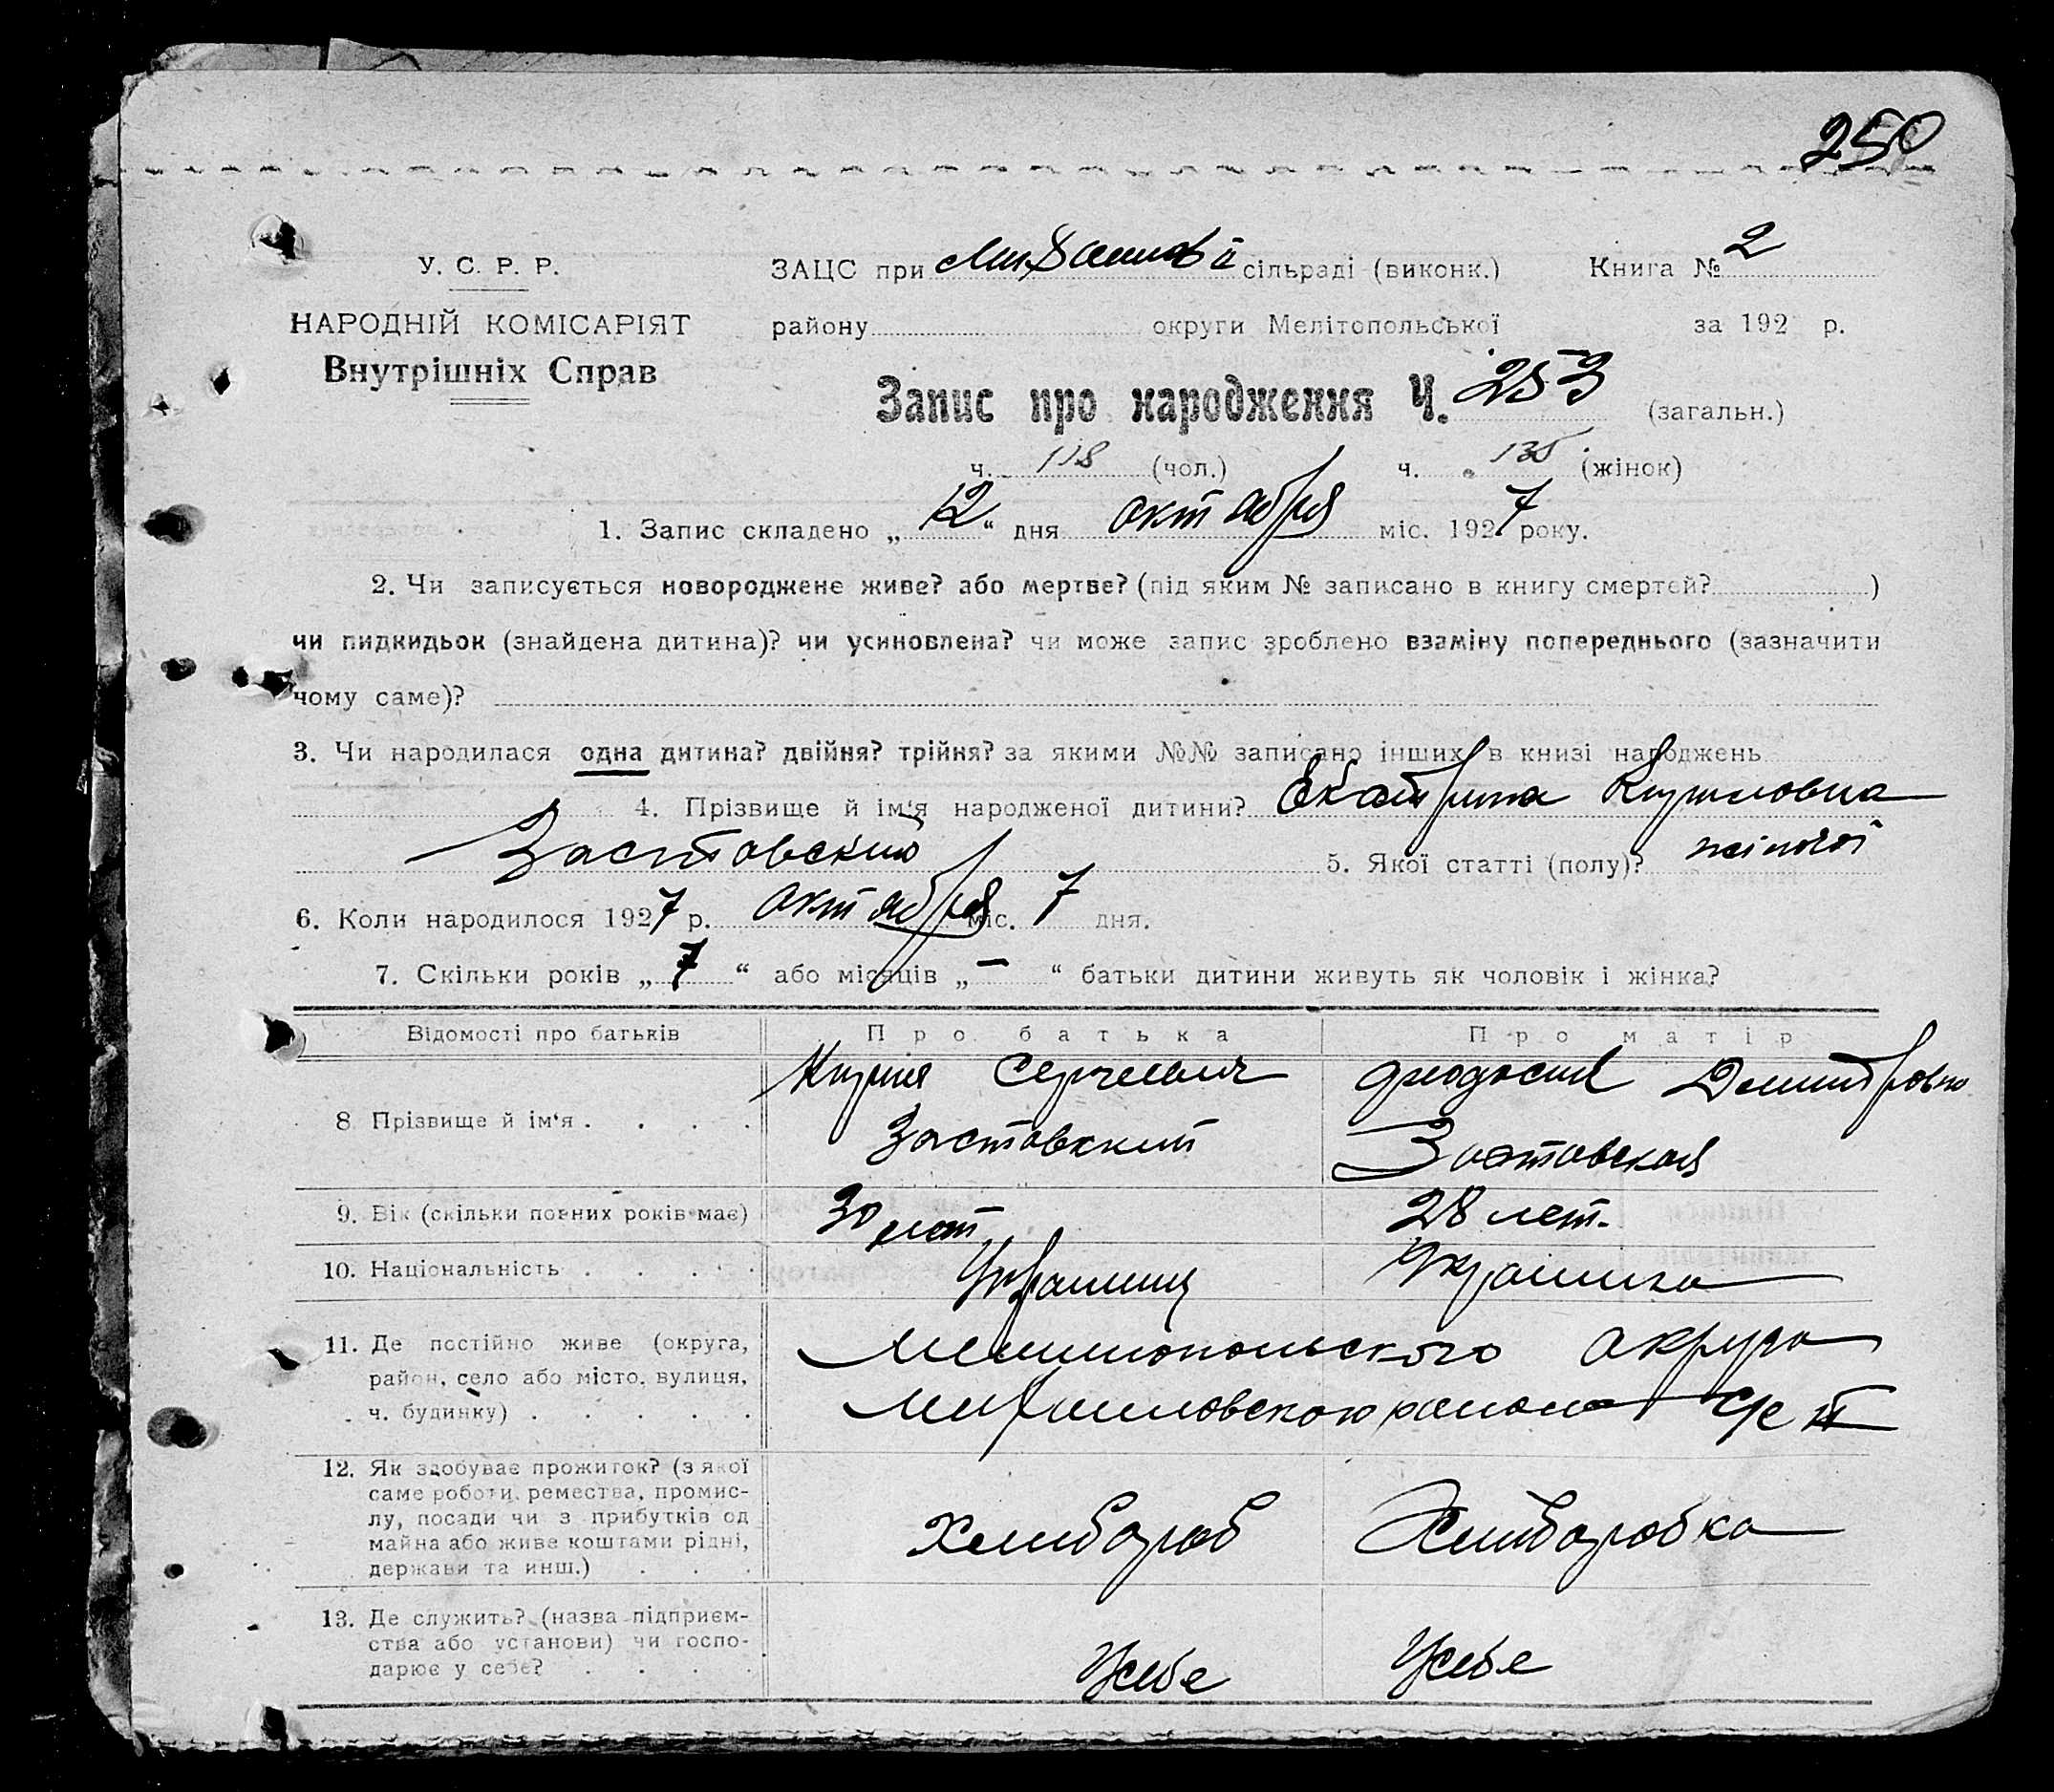 250
У. С. Р. Р.
НАРОДНІЙ КОМІСАРІЯТ
Внутрішніх Справ
ЗАЦС при сільраді (виконк.) Книга № 2
району округи Мелітопольської за 192 р.
Запис про народження Ч. 253 (загальн.)
ч. 118 (чол.) ч. 135 (жінок)
1. Запис складено „ 12 “ дня октября міс. 1927 року.
2. Чи записується новороджене живе? або мертве? (під яким № записано в книгу смертей? )
чи пидкидьок (знайдена дитина)? чи усиновлена? чи може запис зроблено взаміну попереднього (зазначити
чому саме)?
3. Чи народилася одна дитина? двійня? трійня? за якими №№ записано інших в книзі народжень
4. Прізвище й ім‘я народженої дитини? Екатрина Кириловна
Заставский 5. Якої статті (полу)? жіночої
6. Коли народилося 1927 р. октября міс. 7 дня.
7. Скільки років „ 7 “ або місяців „ — “ батьки дитини живуть як чоловік і жінка?
Відомості про батьків Про батька Про матір
8 Прізвище й ім‘я . . . . Кирил Сергиевич Заставский
Димитровна Заставская
9. Вік (скільки повних років має) 30 лет 28 лет.
10. Національність . . . . Украинец Украинка
11. Де постійно живе (округа,
район, село або місто, вулиця,
ч. будинку) . . . . .
Мелитопольского округа
района
12. Як здобуває прожиток? (з якої
саме роботи, ремества, промис-
лу, посади чи з прибутків од
майна або живе коштами рідні,
держави та инш.) . . .
Хлибороб Хлиборобка
13. Де служить? (назва підприєм-
ства або установи) чи госпо-
дарює у себе? . . . .
У себе У себе